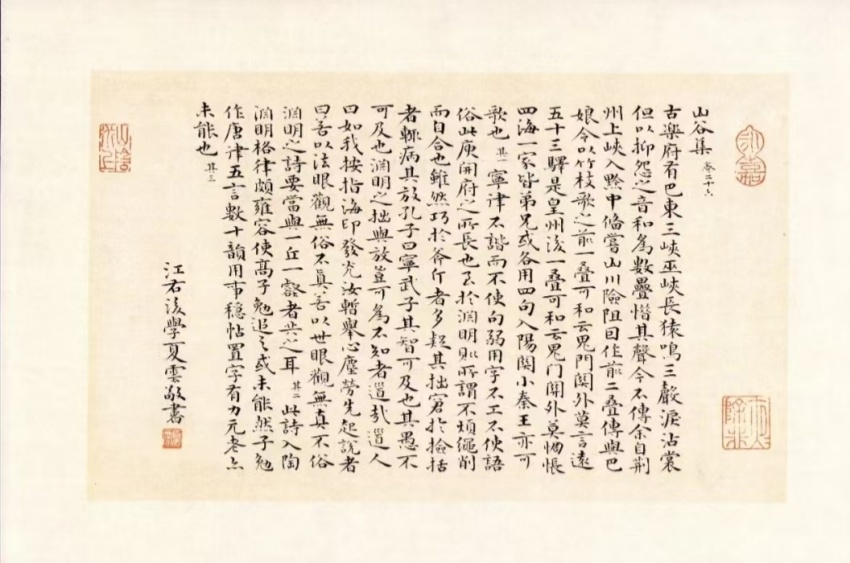 山谷集 卷二十六
古樂府有巴東三峽巫峽長猿鳴三聲淚沾裳
但以抑怨之音和為數疊惜其聲今不傳余自荊
州上峽入黔中備嘗山川險阻因作前二疊傳與巴
娘令以竹枝歌之前一疊可和云鬼門關外莫言遠
五十三驛是皇州後一疊可和云鬼門關外莫惆悵
四海一家皆弟兄或各用四句入陽關小秦王亦可
歌也 其一 寧律不諧而不使句弱用字不工不使語
俗此庾開府之所長也至於淵明則所謂不煩繩削
而自合也雖然巧於斧斤者多疑其拙窘於檢括
者輒病其放孔子曰寧武子其智可及也其愚不
可及也淵明之拙與放豈可為不知者道哉道人
曰如我按指海印發光汝暫舉心塵勞先起說者
曰若以法眼觀無俗不真若以世眼觀無真不俗
淵明之詩要當與一丘一壑者共之耳 其二 此詩入陶
淵明格律頗雍容使高子勉追之或未能然子勉
作唐律五言數十韻用事穩帖置字有力元老亦
未能也 其三
江右後學夏雲敬書